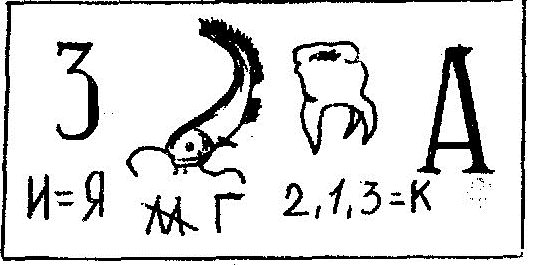 3 А
И=Я М Г 2,1,3=К